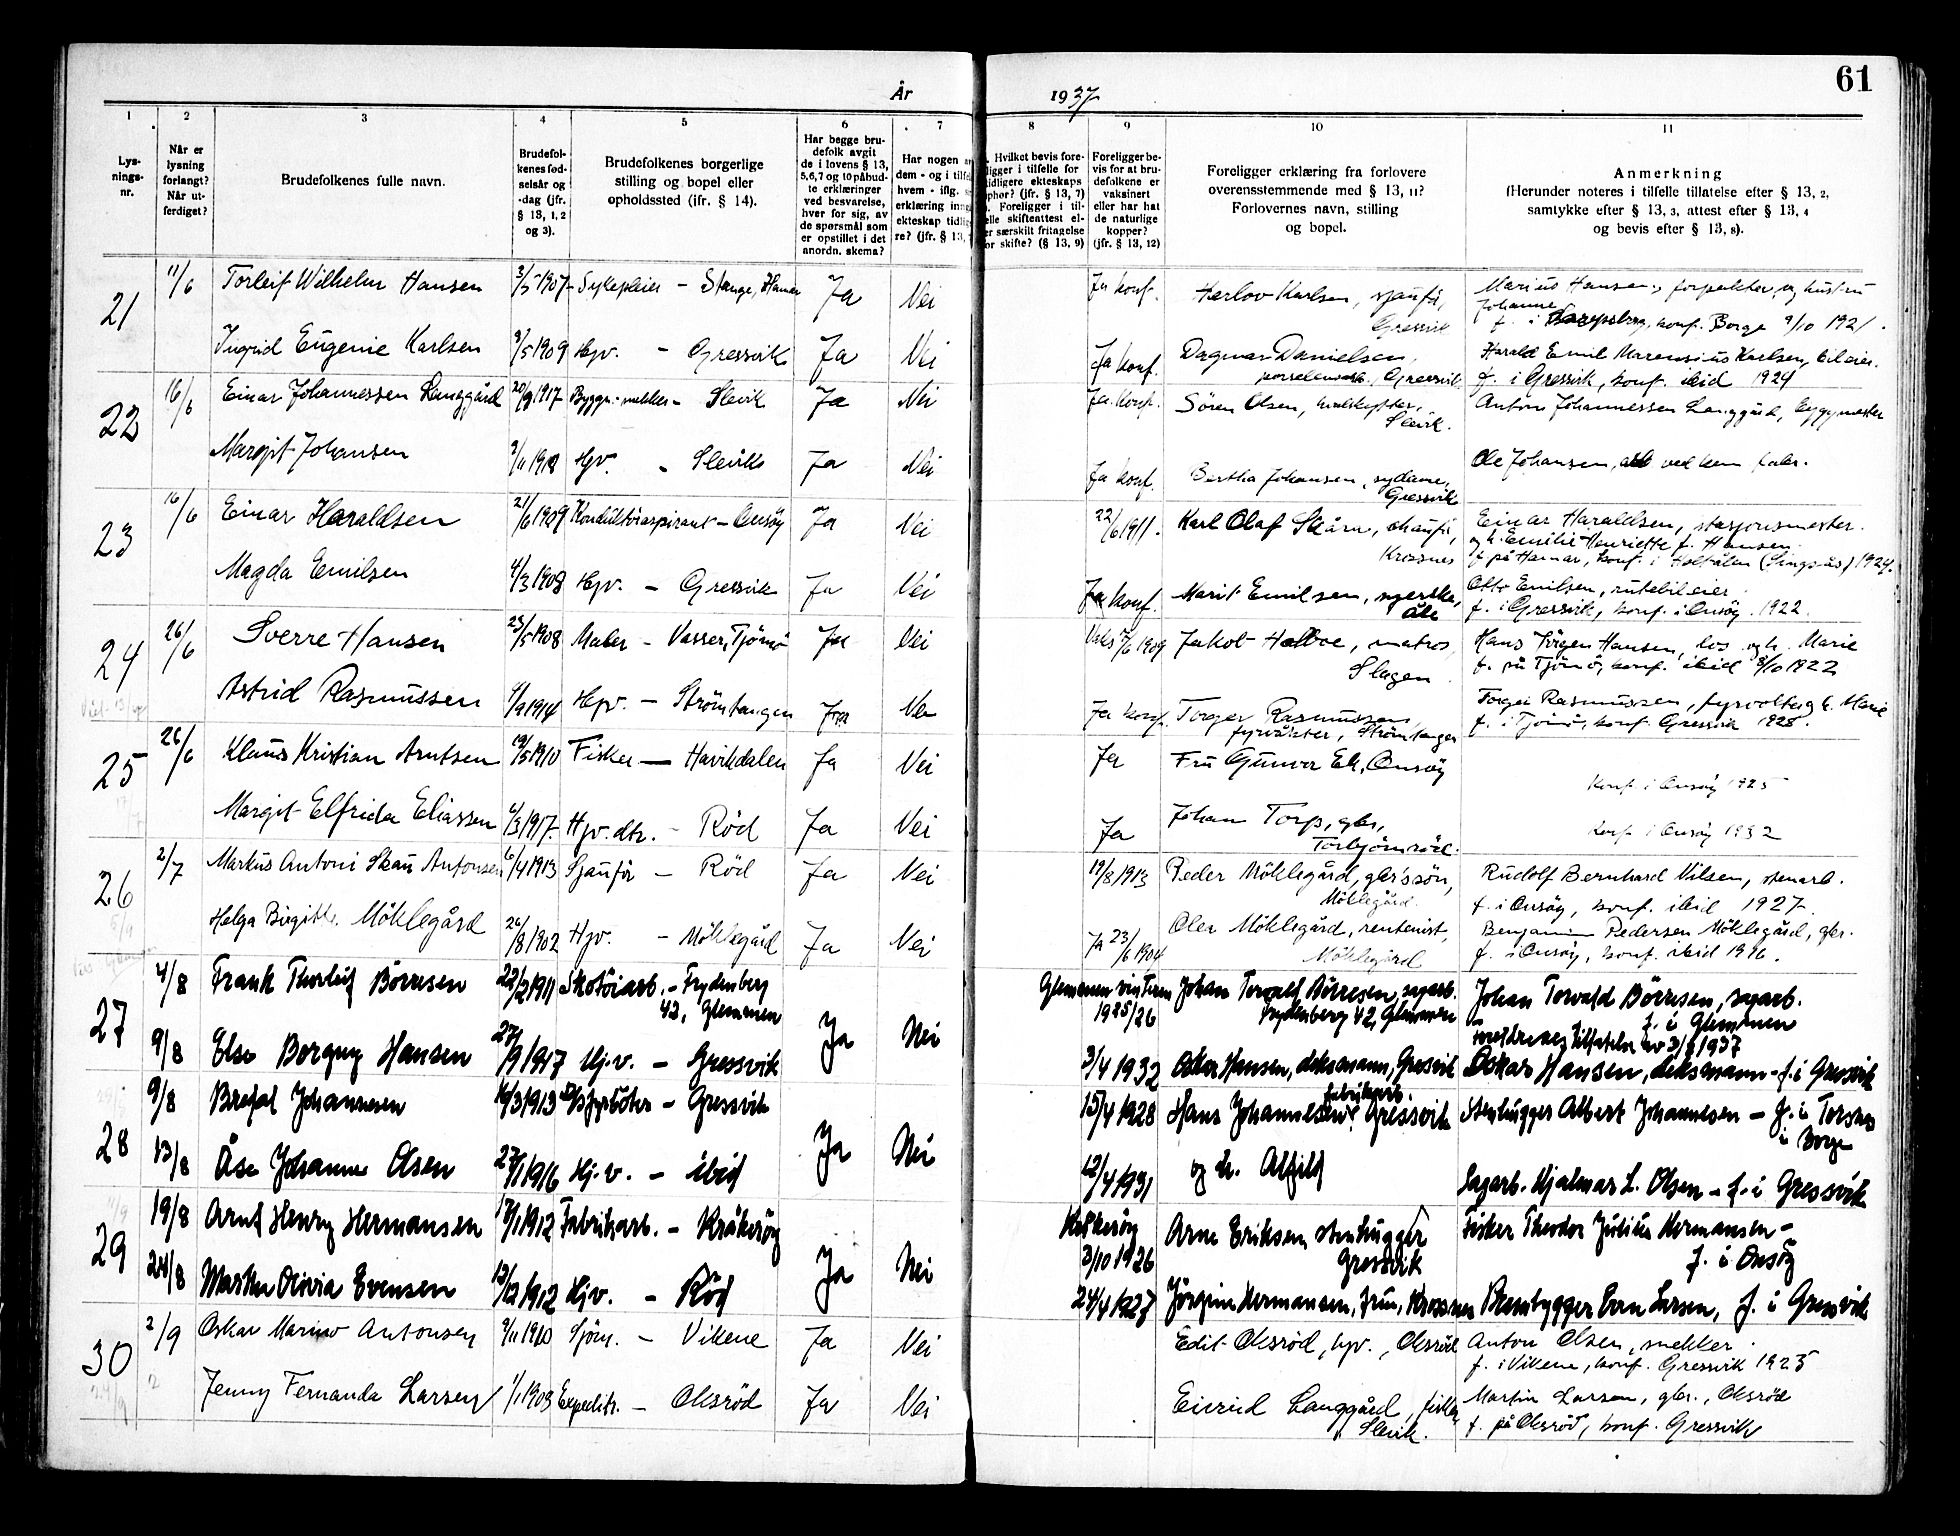 År 1937
61
1 2 3 4 5 6 7 8 9 10 11
Lys-
nings-
nr.
Når er
lysning
forlangt?
Når ut-
ferdiget?
Brudefolkenes fulle navn.
Brudefol-
kenes fød-
selsår og
-dag (jfr.
§ 13, 1, 2
og 3).
Brudefolkenes borgerlige
stilling og bopel eller
opholdssted (ifr. § 14).
Har begge bru-
defolk avgit
de i lovens § 13,
5,6,7 og 10 påbud-
te erklæringer
ved besvarelse,
hver for sig, av
de spørsmål som
er opstillet i det
anordn. skema?
Har nogen
dem - og i tilf
hvem - iflg.
erklæring inng
ekteskap tidlig
re? (jfr. § 13,
Hvilket bevis fore-
ligger i tilfelle for
tidligere ekteskaps
ophør? (jfr. § 13, 7)
Foreligger i til-
elle skifteattest el-
er særskilt fritagelse
for skifte? (§ 13, 9)
Foreligger be-
vis for at bru-
defolkene er
vaksinert
eller har hat
de naturlige
kopper?
(jfr. § 13, 12)
Foreligger erklæring fra forlovere
overensstemmende med § 13, 11?
Forlovernes navn, stilling
og bopel.
Anmerkning
(Herunder noteres i tilfelle tillatelse efter § 13, 2,
samtykke efter § 13, 3, attest efter § 13, 4
og bevis efter § 13, 8).
21 11/6 Torleif Wilhelm Hansen 3/5 1907 Sykepleier – Stange, Hamar Ja Nei Ja konf. Herlov Karlsen, sjauför, Marius Hansen, forpakter, og hustru
Johanne
Gressvik f. i Sarpsborg, konf. Borge 9/10 1921.
Ingrid Eugenie Karlsen 9/5 1909 Hgv. – Gressvik Ja Nei Ja konf. Dagmar Danielsen, Harald Emil Marensius Karlsen, bileier.
Gressvik f. i Gressvik, konf. ibid 1924
22 16/6 Einar Johannessen Langgård 20/9 1917 Byggn.-snekker – Slevik Ja Nei Ja konf. Sören Olsen, hvalskytter, Anton Johannessen Langgård, byggmester
Slevik.
Margit Johansen 2/11 1918 Hgv. – Slevik Ja Nei Ja konf. Bertha Johansen, sydame, Ole Johansen, arb ved kem. fabr.
Gressvik
23 16/6 Einar Haraldsen 21/6 1909 Konduktöraspirant – Onsöy Ja Nei 22/6 1911. Karl Olaf Skårn, chauför, Einar Haraldsen, stasjonsmester.
og h. Emilie Henriette f. Hansen.
Krossnes f. på Hamar, konf. i Holtålen (Singsås) 1924.
Magda Emilsen 4/3 1908 Hgv. – Gressvik Ja Nei Ja konf. Marit Emilsen, syerske, Otto Emilsen, rutebileier.
Åle f. i Gressvik, konf. i Onsöy 1922.
24 26/6 Sverre Hansen 23/5 1908 Maler – Vasser, Tjömö Ja Nei 1909 Jakob Halvor, matros, Hans Jörgen Hansen, los og h. Marie
Slagen. f. på Tjömö, konf. ibid 8/10 1922
Astrid Rasmussen 4/9 1914 Hgv. – Strömtangen Ja Nei Ja konf. Torger Rasmussen, Torger Rasmussen, fyrvokter og h. Marie
fyrvakter, Strömtangen f. i Tjömö, konf. Gressvik 1928.
25 26/6 Klaus Kristian Arntsen 19/5 1910 Fisker – Havikdalen Ja Nei Ja Fru Gunvor Ek, Onsöy
Konf. i Onsöy 1925
Margit Elfrida Eliassen 6/3 1917. Hgv. dtr. – Röd Ja Nei Ja Johan Torp, gbr., Konf. i Onsöy 1932
Torbjörnröd.
26 2/7 Markus Antoni Skau Antonsen 6/4 1913 Sjauför – Röd Ja Nei 19/8 1913 Peder Möklegård, gbr's sön, Rudolf Bernhard Nilsen, stenarb.
Möklegård. f. i Onsöy, konf. ibid 1927.
Helga Birgitte Möklegård 26/8 1902 Hgv. – Möklegård Ja Nei Ja 23/6 1904 Olea Möklegård, rentenist, Benjamin Pedersen Möklegård, gbr.
Möklegård f. i Onsöy, konf. ibid 1916.
27 4/8 Frank Thorleif Börresen 22/2 1911 Skotöiarb. – Frydenberg Glemmen vinteren Johan Torvald Börresen, sagarb. Johan Torvald Börresen, sagarb.
42, Glemmen Ja Nei 1925/26 Frydenberg 42, Glemmen f. i Glemmen
1937
9/8 Else Borgny Hansen 27/9 1917 Hj.v. – Gressvik 3/4 1932 Oskar Hansen, deksmann, Gressvik Oskar Hansen, deksmann – f. i Gressvik
28 9/8 Johannesen 16/3 1913 – Gressvik 15/4 1928 Hans Johannesen fabrikarb. Gressvik Stenhugger Albert Johannesen – f. i Torsnes
Ja Nei i Borge
13/8 Åse Johanne Olsen 27/1 1916 Hj.v. – ibid 12/4 1931 og h. Alfild Sagarb. Hjalmar L. Olsen – f. i Gressvik
29 19/8 Arnt Henry Hermansen 17/1 1912 Fabrikarb. – Kråkeröy Kråkeröy Arne Eriksen stenhugger Fisker Theodor Julius Hermansen –
Ja Nei 3/10 1926 Gressvik f. i Onsöy
24/8 Martha Olivia Evensen 13/12 1912 Hj.v. – Röd 24/4 1927 Jörgine Hermansen, frue, Krossnes Båtbygger Even Larsen, f. i Gressvik
30 2/9 Oskar Marino Antonsen 9/11 1910 Sjöm. – Vikene Ja Nei Edit Oksröd, hgv., Oksröd Anton Olsen, snekker.
f. i Vikene, konf. Gressvik 1925
Jenny Fernanda Larsen 1/1 1903 Expeditr. – Oksröd Ja Nei Eivind Langgård, fisker Martin Larsen, gbr., Oksröd
Slevik. f. på Oksröd, konf. Gressvik